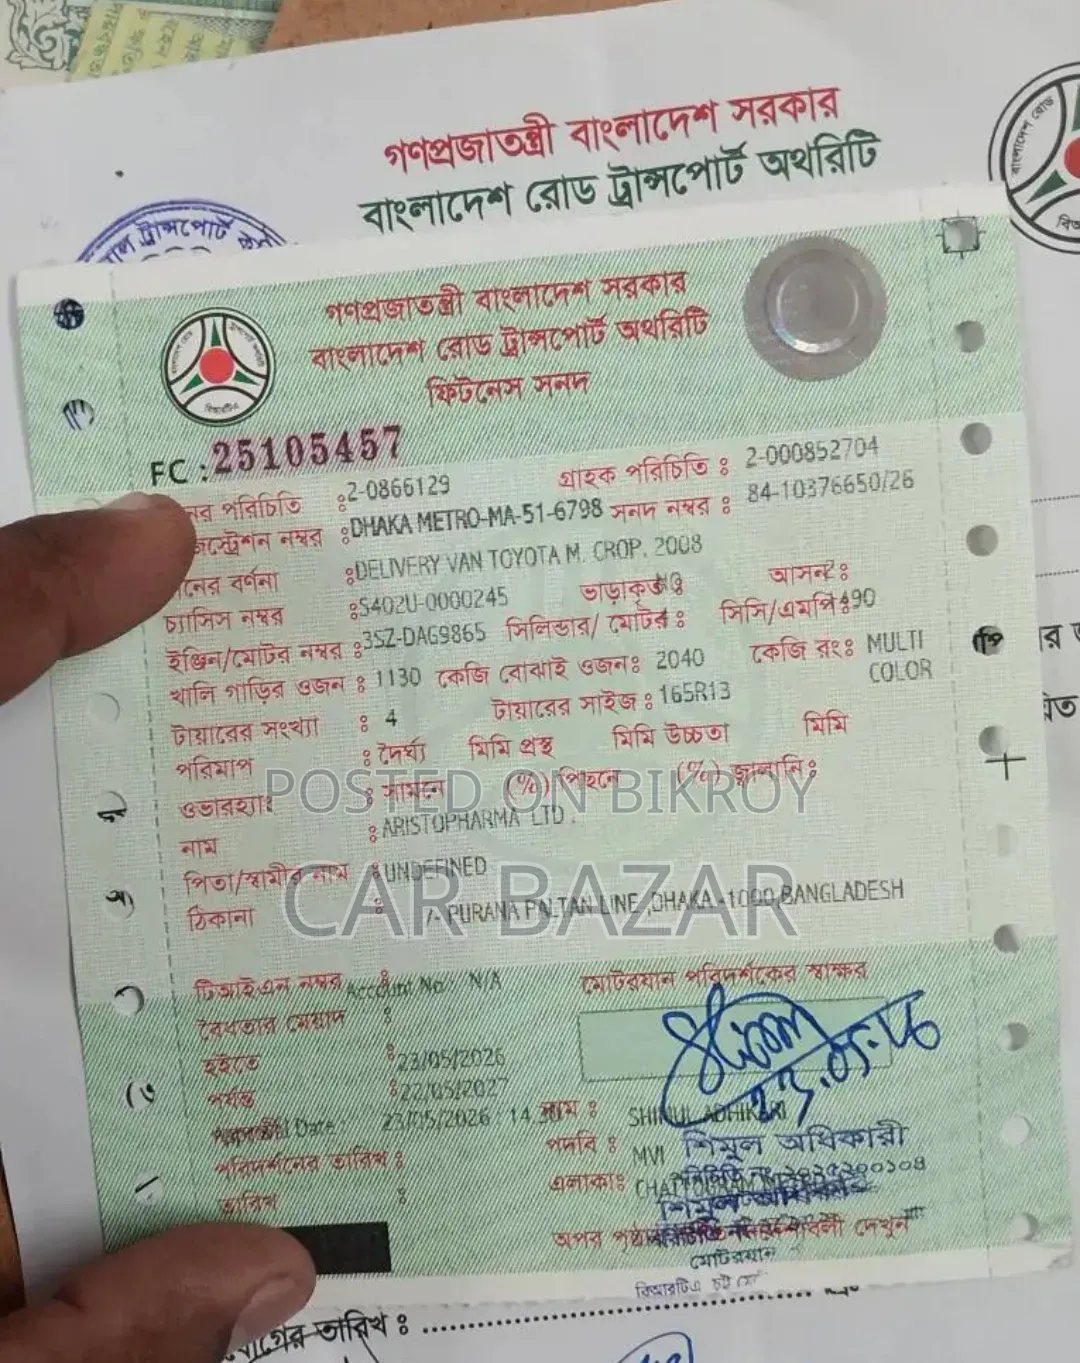 গণপ্রজাতন্ত্রী বাংলাদেশ সরকার
বাংলাদেশ রোড ট্রান্সপোর্ট অথরিটি
ট্রান্সপোর্ট
গণপ্রজাতন্ত্রী বাংলাদেশ সরকার
বাংলাদেশ রোড ট্রান্সপোর্ট অথরিটি
ফিটনেস সনদ
বিআরটিএ
FC : 25105457
পরিচিতি : 2-0866129 গ্রাহক পরিচিতি : 2-000852704
নম্বর : DHAKA METRO-MA-51-6798 সনদ নম্বর : 84-10376650/26
বর্ণনা : DELIVERY VAN TOYOTA M. CROP. 2008
চ্যাসিস নম্বর : S402U-0000245 ভাড়াকৃত আসন :
ইঞ্জিন/মোটর নম্বর : 3SZ-DAG9865 সিলিন্ডার/ মোটর : সিসি/এমপি : 490
খালি গাড়ির ওজন : 1130 কেজি বোঝাই ওজন : 2040 কেজি রং : MULTI COLOR
টায়ারের সংখ্যা : 4 টায়ারের সাইজ : 165R13
পরিমাপ : দৈর্ঘ্য মিমি প্রস্থ মিমি উচ্চতা মিমি
ওভারহ্যাং : সামনে (%) পিছনে (%) জ্বালানি :
POSTED ON BIKROY
নাম : ARISTOPHARMA LTD .
পিতা/স্বামীর নাম : UNDEFINED
CAR BAZAR
ঠিকানা : 7- PURANA PALTAN LINE ,DHAKA -1000,BANGLADESH
টিআইএন নম্বর : Account No : N/A মোটরযান পরিদর্শকের স্বাক্ষর
বৈধতার মেয়াদ :
হইতে : 23/05/2026
পর্যন্ত : 22/05/2027
Date 23/05/2026 14 নাম : SHIMUL ADHIKARI
পরিদর্শনের তারিখ : পদবি : MVI শিমুল অধিকারী
তারিখ : এলাকা :
অপর পৃষ্ঠায় দেখুন
মোটরযান
বিআরটিএ
তারিখ :